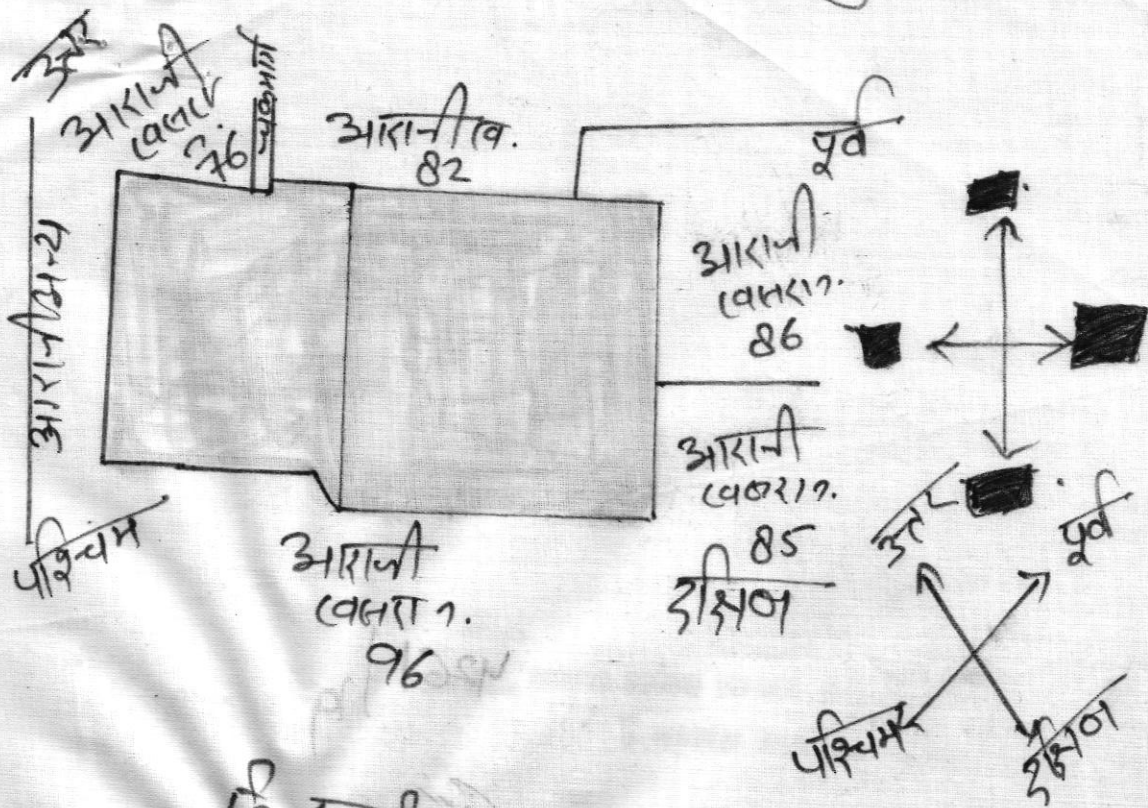 उत्तर
आराजी
खसरा
76
चकमार्ग
आराजी ख.
82
पूर्व
आराजी अन्य
आराजी
खसरा न.
86
आराजी
खसरा न.
85
दक्षिण
पश्चिम
आराजी
खसरा न.
96
उत्तर
पूर्व
पश्चिम
दक्षिण